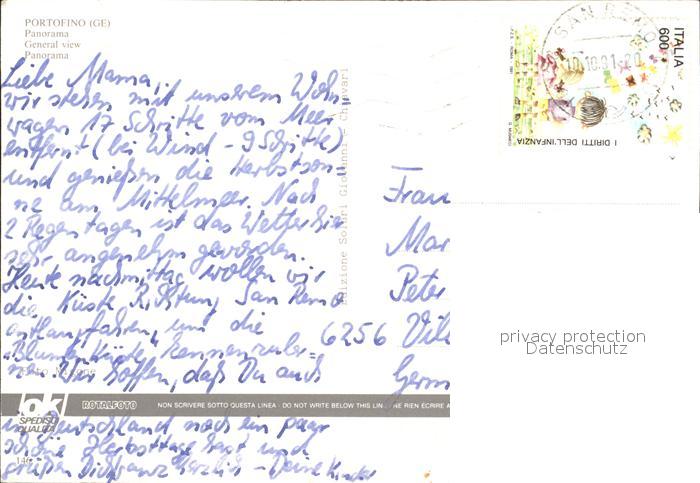 PORTOFINO (GE)
Panorama
General view
Panorama
Liebe Mama,
wir stehen mit unserem Wohn
wagen 17 Schritte vom Meer
entfernt (bei Wind - 9 Schritte)
und genießen die Herbstson-
ne am Mittelmeer. Nach
2 Regentagen ist das Wetter hier
sehr angenehm geworden.
Heute nachmittag wollen wir
die Küste Richtung San Remo
entlangfahren, um die
"Blumenküste" kennenzuler=
nen. Wir hoffen, daß Du auch
in Deutschland noch ein paar
schöne Herbsttage hast und
grüßen Dich ganz herzlich - Deine Kinder
Edizione Solari Giovanni - Chiavari
SAN REMO
10.10.91-20
ITALIA
600
I DIRITTI DELL'INFANZIA
Frau
Mar
Peter
6256 Vil
Germ
privacy protection
Datenschutz
ok
SPEDISCI
QUALITÀ
ROTALFOTO
NON SCRIVERE SOTTO QUESTA LINEA - DO NOT WRITE BELOW THIS LIN NE RIEN ÉCRIRE A